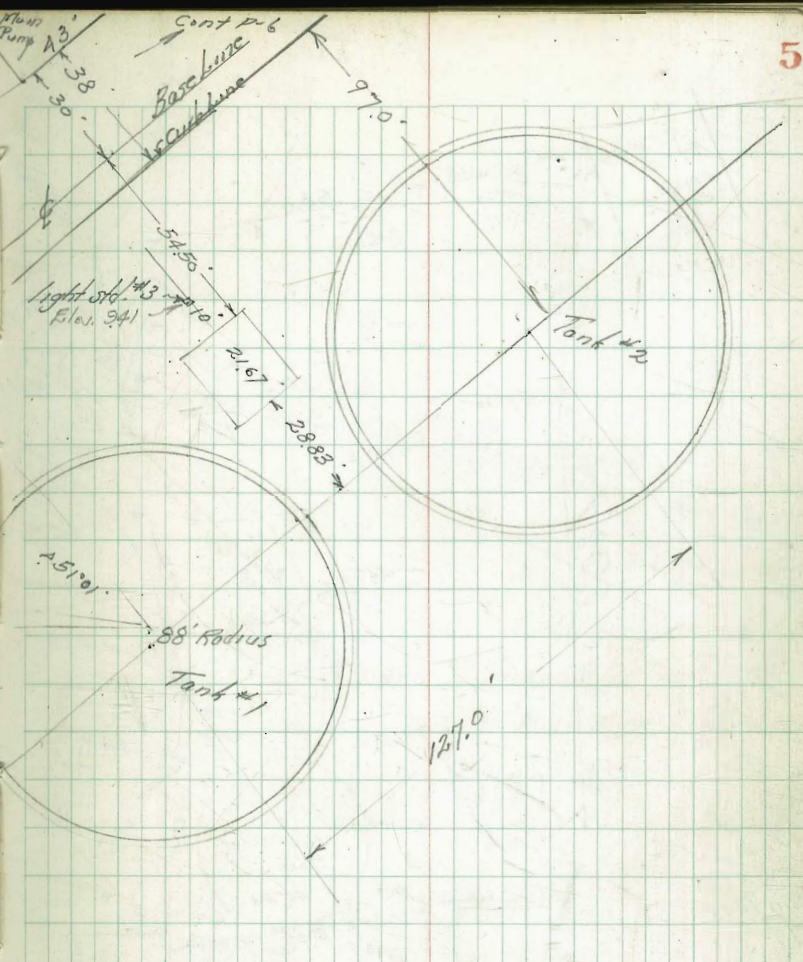 Main
Pump
3'
Cont p-6
5
38
30'
Base Line
Curb Line
97.0'
℄
54.50'
light std. #3
10'
Elev. 941
21.67'
28.83'
Tank #2
51°01'
88' Radius
Tank #1
127.0'